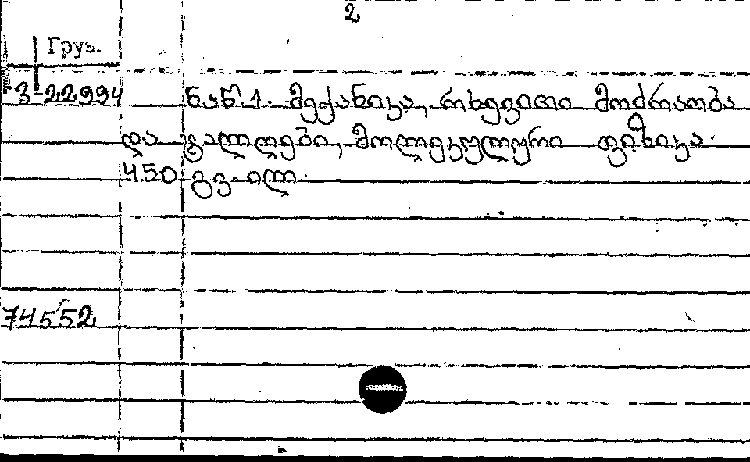 2
Груз.
3-22994 ნაწ. 1. მექანიკა, რხევითი მოძრაობა
და ტალღები, მოლეკულური ფიზიკა.
450 გვ. ილ.
74552